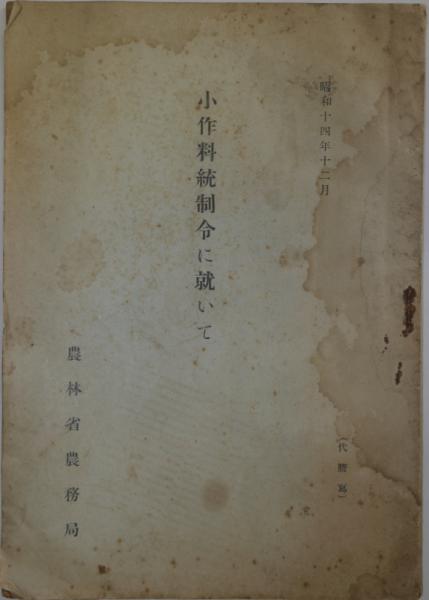 昭和十四年十二月
（代謄寫）
小作料統制令に就いて
農林省農務局